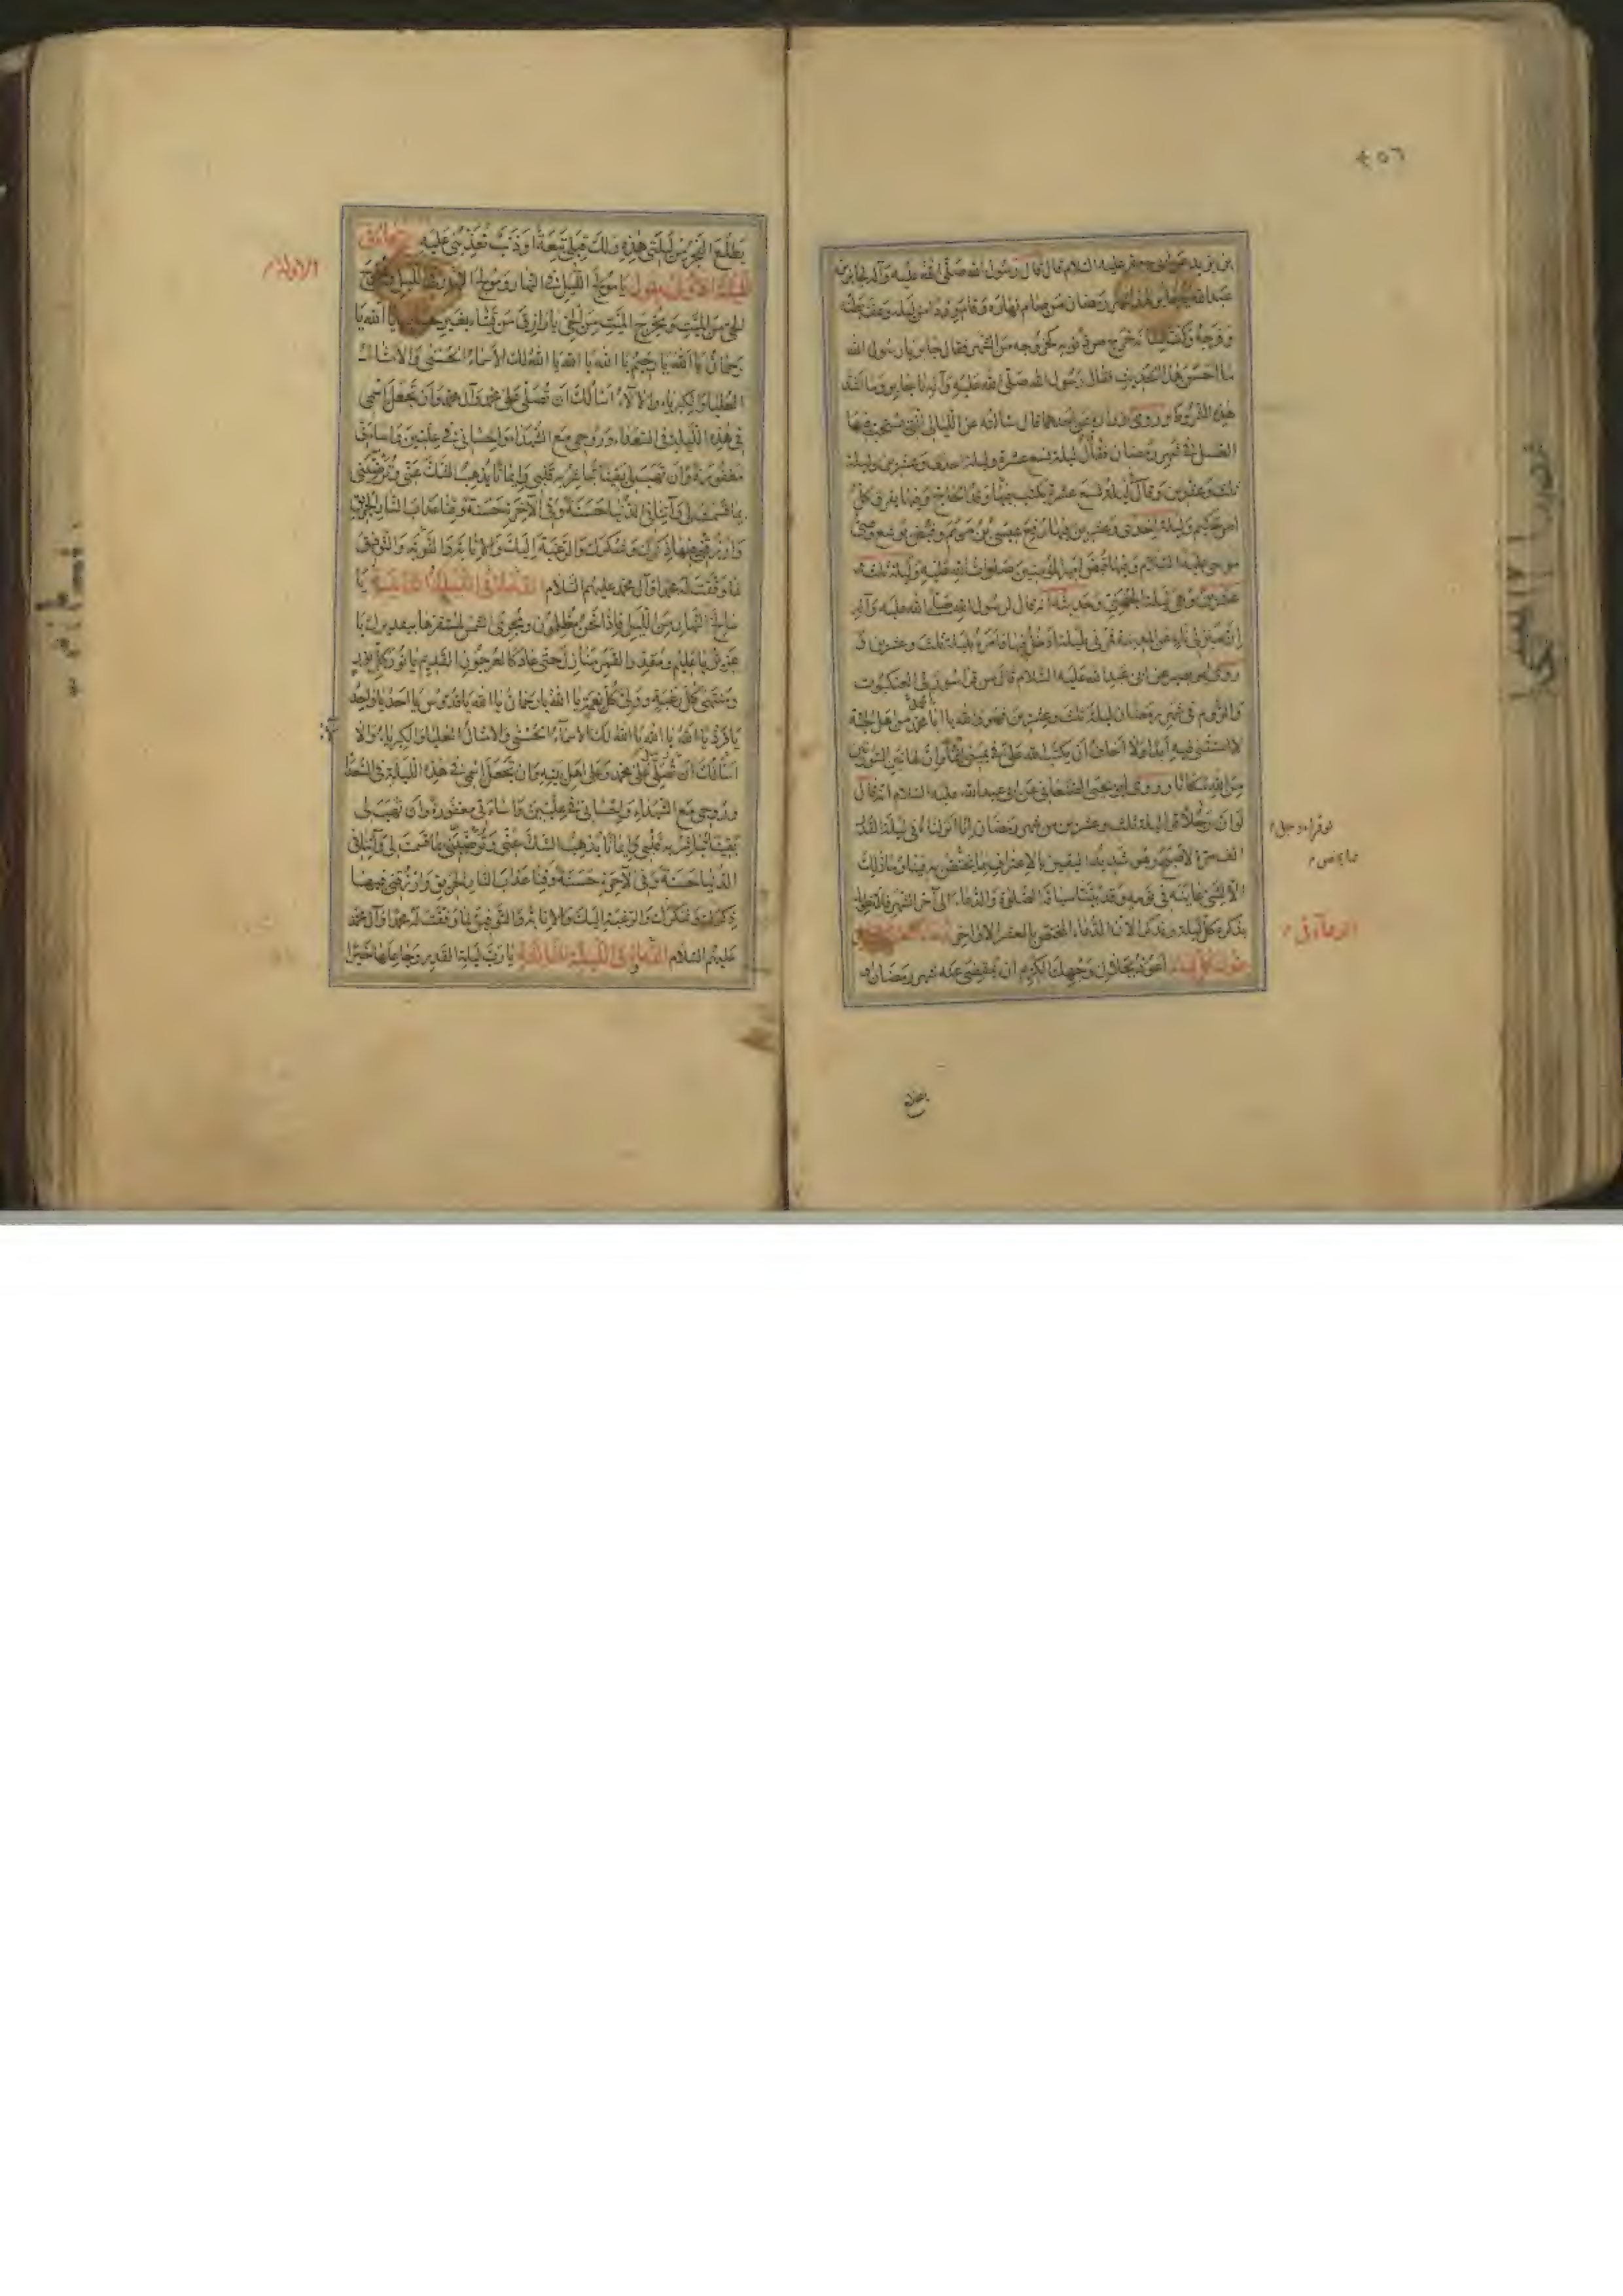 ٤٥٦
بن يزيد عن ابى جعفر عليه السلام قال قال رسول الله صلّى الله عليه وآله لجابر بن
عبد الله يا جابر هذا شهر رمضان من صام نهاره وقام وردا من ليله وعف بطنه
وفرجه وكف لسانه خرج من ذنوبه كخروجه من الشهر فقال جابر يا رسول الله
ما احسن هذا الحديث فقال رسول الله صلّى الله عليه وآله يا جابر وما اشد
هذه الشروط وروى زراره عن احدهما قال سالته عن الليالى التى يستحب فيها
الغسل فى شهر رمضان فقال ليلة تسع عشرة وليلة احدى وعشرين وليلة
ثلث وعشرين وقال ليلة تسع عشرة يكتب فيها وفد الحاج وفيها يفرق كل
امر حكيم وليلة احدى وعشرين فيها رفع عيسى بن مريم وقبض يوشع وصى
موسى عليه السلام وفيها قبض امير المؤمنين صلوات الله عليه وليلة ثلث و
عشرين وهى ليلة الجهنى وحديثه انه قال لرسول الله صلى الله عليه وآله
ان منزلى ناء عن المدينة فمرنى بليلة ادخل فيها فامره بليلة ثلث وعشرين و
روى ابو بصير عن ابى عبد الله عليه السلام قال من قرا سورتى العنكبوت
والروم فى شهر رمضان ليلة ثلث وعشرين فهو والله يا ابا محمد من اهل الجنة
لا استثنى فيه ابدا ولا اخاف ان يكتب الله علىّ فى يمينى اثما وان لهاتين السورتين
من الله مكانا وروى ابو يحيى الصنعانى عن ابى عبد الله عليه السلام انه قال
لو ان رجلا قرا ليلة ثلث وعشرين من شهر رمضان انا انزلناه فى ليلة القدر
الف مرة لاصبح وهو شديد اليقين بالاعتراف بما يختص به فينا وما ذلك
الا لشئ عاينه فى نومه وقد بيّنا سياقة الصلوة والدعاء الى آخر الشهر فلا نطول
بذكره كل ليلة ونذكر الآن الدعاء المختص بالعشر الاواخر
تقول كل ليلة اعوذ بجلال وجهك الكريم ان ينقضى عنى شهر رمضان او
الدعاء فى
يطلع الفجر من ليلتى هذه ولك قبلى تبعة او ذنب تعذبنى عليه
الليلة الاولى تقول يا مولج الليل فى النهار ومولج النهار فى الليل ومخرج
الحى من الميت ومخرج الميت من الحى يا رازق من يشاء بغير حساب يا الله يا
رحمان يا الله يا رحيم يا الله يا الله يا الله لك الاسماء الحسنى والامثال
العليا والكبرياء والآلاء اسالك ان تصلى على محمد وآل محمد وان تجعل اسمى
فى هذه الليلة فى السعداء وروحى مع الشهداء واحسانى فى عليين واساءتى
مغفورة وان تهب لى يقينا تباشر به قلبى وايمانا يذهب الشك عنى وترضينى
بما قسمت لى وآتنا فى الدنيا حسنة وفى الآخرة حسنة وقنا عذاب النار الحريق
وارزقنى فيها ذكرك وشكرك والرغبة اليك والانابة والتوبة والتوفيق
لما وفقت له محمدا وآل محمد عليهم السلام الدعاء فى الليلة الثانية يا
سالخ النهار من الليل فاذا نحن مظلمون ومجرى الشمس لمستقرها بتقديرك يا
عزيز يا عليم ومقدر القمر منازل حتى عاد كالعرجون القديم يا نور كل نور
ومنتهى كل رغبة وولى كل نعمة يا الله يا رحمان يا الله يا قدوس يا احد يا واحد
يا فرد يا الله يا الله يا الله لك الاسماء الحسنى والامثال العليا والكبرياء والآ
اسالك ان تصلى على محمد وعلى اهل بيته وان تجعل اسمى فى هذه الليلة فى السعدا
وروحى مع الشهداء واحسانى فى عليين واساءتى مغفورة وان تهب لى
يقينا تباشر به قلبى وايمانا يذهب الشك عنى وترضينى بما قسمت لى وآتنا فى
الدنيا حسنة وفى الآخرة حسنة وقنا عذاب النار الحريق وارزقنى فيها
ذكرك وشكرك والرغبة اليك والانابة والتوفيق لما وفقت له محمدا وآل محمد
عليهم السلام الدعاء فى الليلة الثالثة يا رب ليلة القدر وجاعلها خيرا